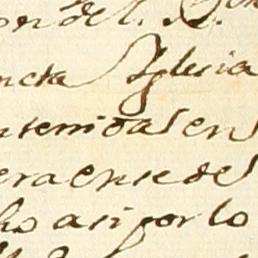 on del. R.
ncta Yglesia
ntenidas en
era ense del
ho asi por lo